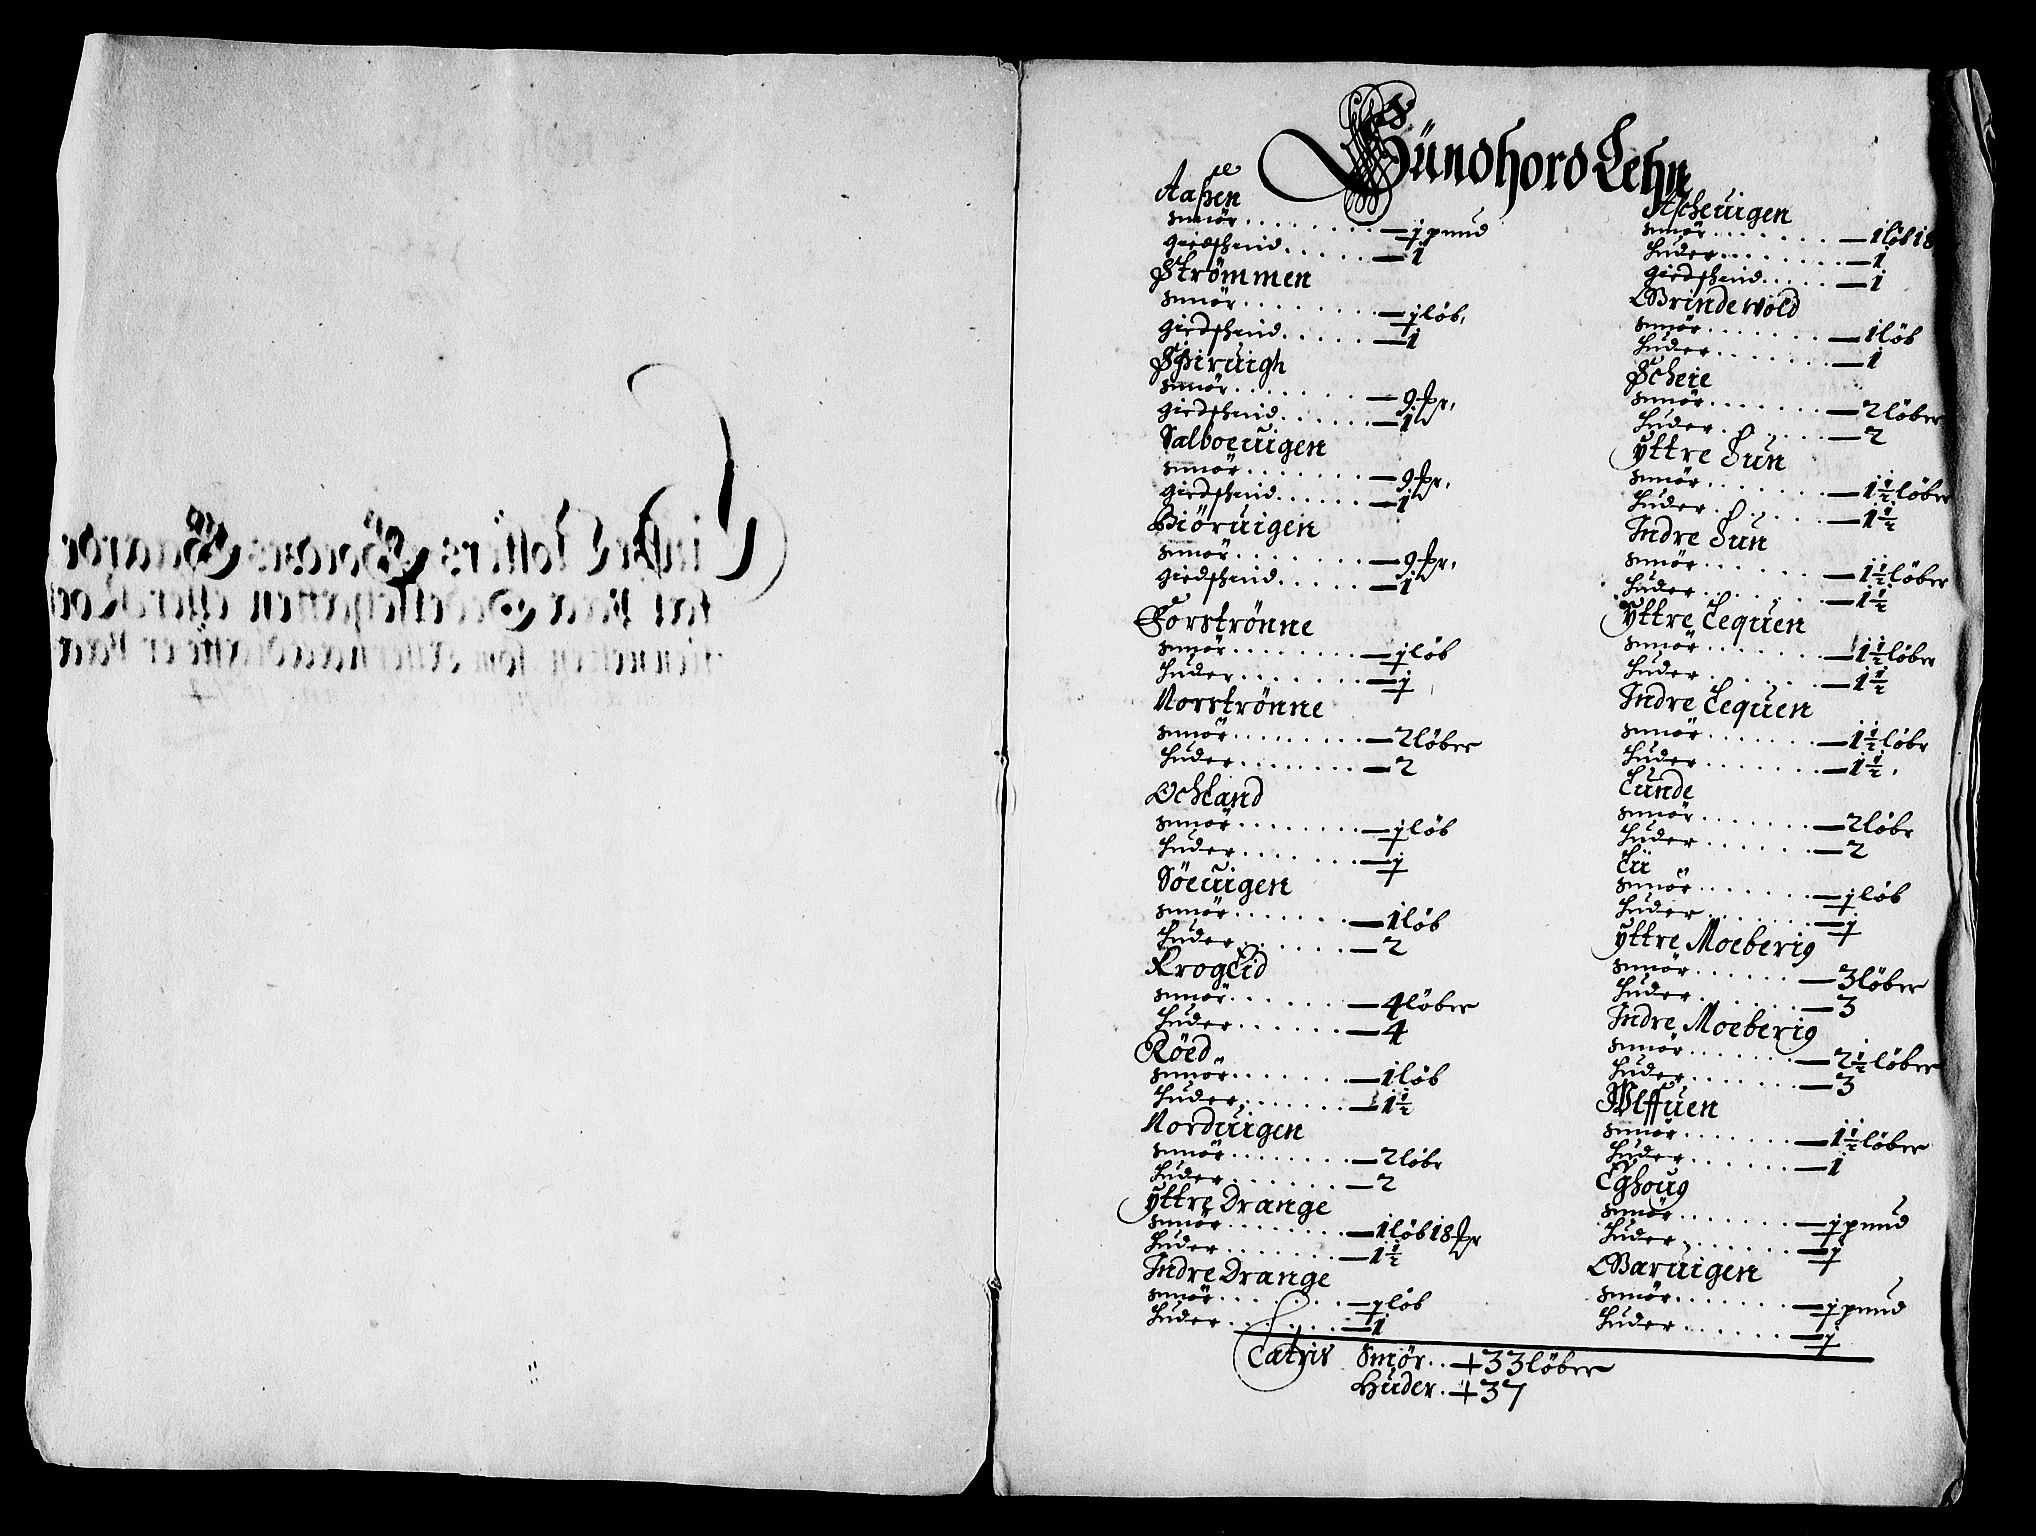 Sündhord Lehn
Aaßen
Smör - j pund
giedschind - 1
Strömmen
Smör - j löb,
giedschind - 1
Schiruigh
Smör - 9
giedschind - 1
Salboeuigen
Smör - 9
giedschind - 1
Biöruigen
Smör - 9
giedschind - 1
Forströnne
Smör - j löb
Huder - j
Norströnne
Smör - 2 löber
Huder - 2
Ochland
Smör - j löb
Huder - j
Söeuigen
Smör - 1 löb
Huder - 2
Krogeid
Smör - 4 löber
Huder - 4
Röed
Smör - 1 löb
Huder - 1½
Norduigen
Smör - 2 löbr
Huder - 2
yttre Drange
Smör - 1 löb 18
Huder - 1½
Indre Drange
Smör - j löb
Huder - 1
Ascheuigen
Smör - 1 löb 18
Huder - 1
giedschind - 1
Grindewold
Smör - 1 löb
Huder - 1
Scheie
Smör - 2 löber
Huder - 2
yttre Lun
Smör - 1½ löber
Huder - 1½
Indre Lun
Smör - 1½ löber
Huder - 1½
yttre Lequen
Smör - 1½ löber
Huder - 1½
Indre Lequen
Smör - 1½ löbr
Huder - 1½
Lunde
Smör - 2 löbr
Huder - 2
Lii
Smör - j löb
Huder - j
yttre Moeberig
Smör - 3 löber
Huder - 3
Indre Moeberig
Smör - 2½ löber
Huder - 3
Wlffuen
Smör - 1½ löber
Huder - 1
Eghoug
Smör - j pund
Huder - j
Baruigen
Smör - j pund
Huder - j
Latris Smör - 33 löber
Huder - 37